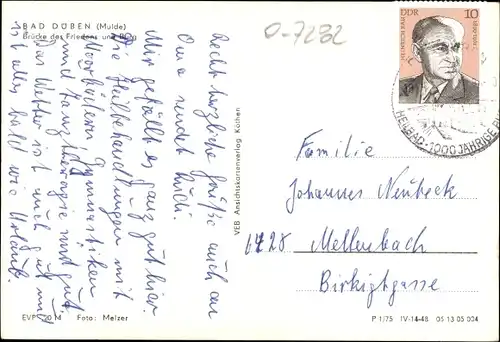 BAD DÜBEN (Mulde)
Brücke des Friedens und Burg
O-7282
DDR 10
HEINRICH RAU
HEILBAD · 1000 JÄHRIGE
Recht herzliche Grüße auch an
Oma sendet Euch
Mir gefällt es ganz gut hier.
Die Heilbehandlungen mit
Moorbädern Gymnastiken
und tut gut.
Das Wetter ist auch gut und
ist alles bald wie Urlaub.
VEB Ansichtskartenverlag Köthen
Familie
Johannes Neubeck
6428 Mellenbach
Birkigtgasse
EVP 20 M Foto: Melzer
P 1/75 IV-14-48 05 13 05 004